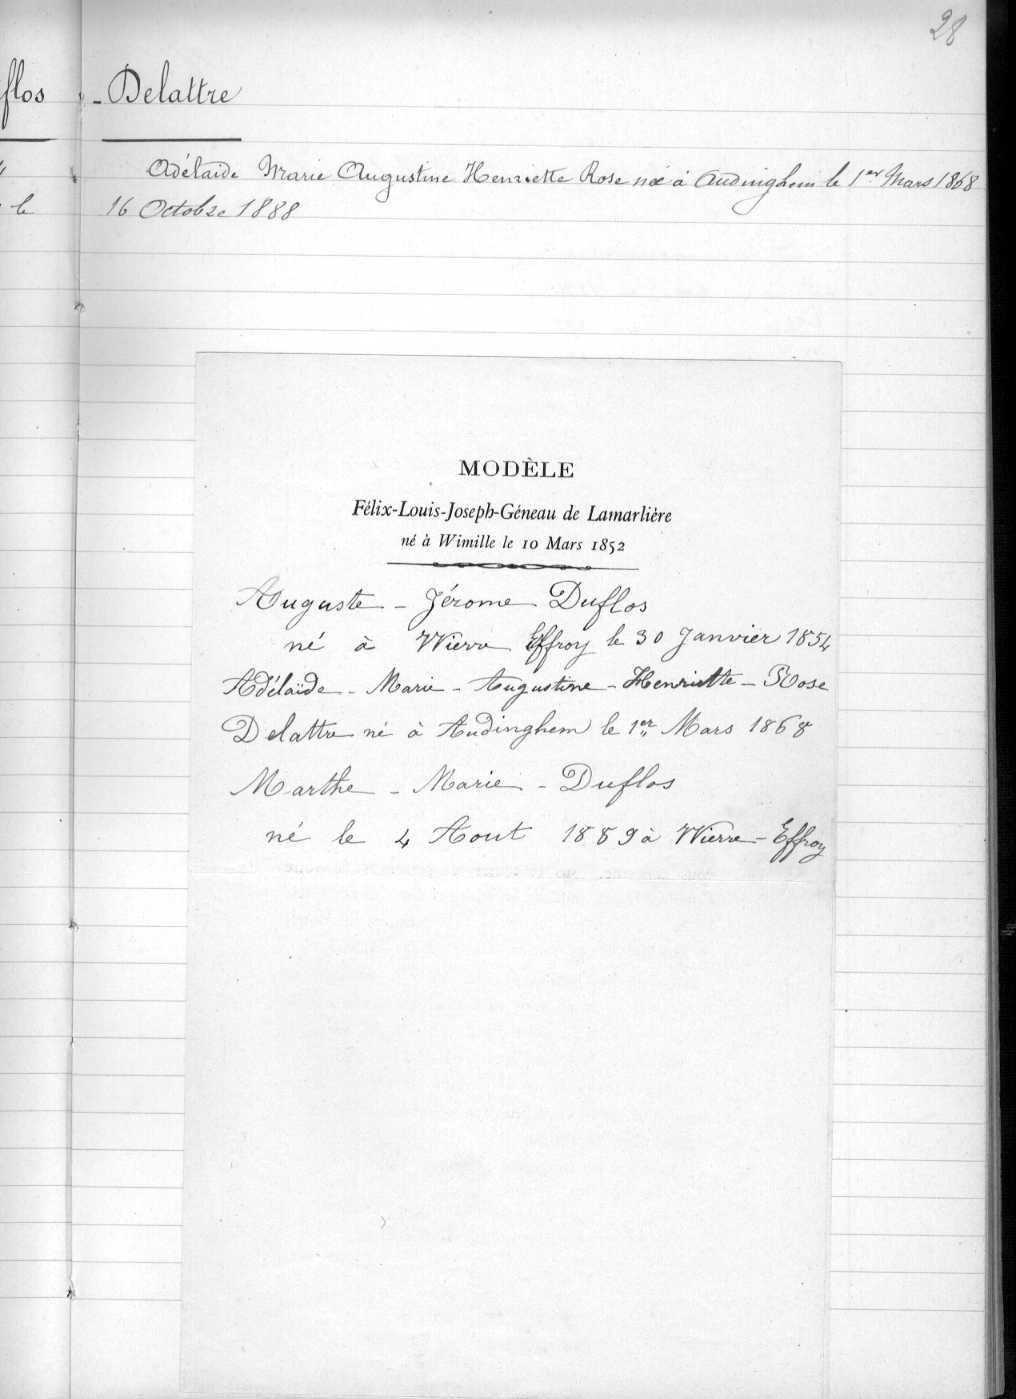 28
flos - Delattre
Adélaïde Marie Augustine Henriette Rose née à Audinghem le 1er Mars 1868
le 16 Octobre 1888
MODÈLE
Félix-Louis-Joseph-Géneau de Lamarlière
né à Wimille le 10 Mars 1852
Auguste - Jérome Duflos
né à Wierre Effroy le 30 Janvier 1854
Adélaïde - Marie - Augustine - Henriette - Rose
Delattre né à Audinghem le 1er Mars 1868
Marthe - Marie - Duflos
né le 4 Aout 1889 à Wierre - Effroy